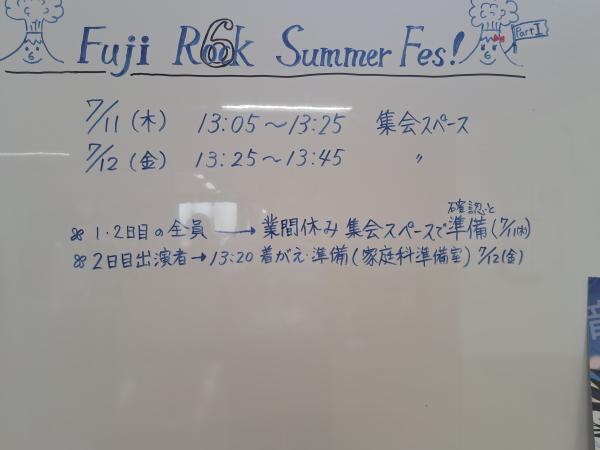 Fuji Ro6k Summer Fes!
Part I
6
6
7/11 (木) 13:05～13:25 集会スペース
7/12 (金) 13:25～13:45 〃
※ 1・2日目の全員 → 業間休み 集会スペースで確認と準備 (7/11(木))
※ 2日目出演者→13:20 着がえ・準備 (家庭科準備室) 7/12(金)